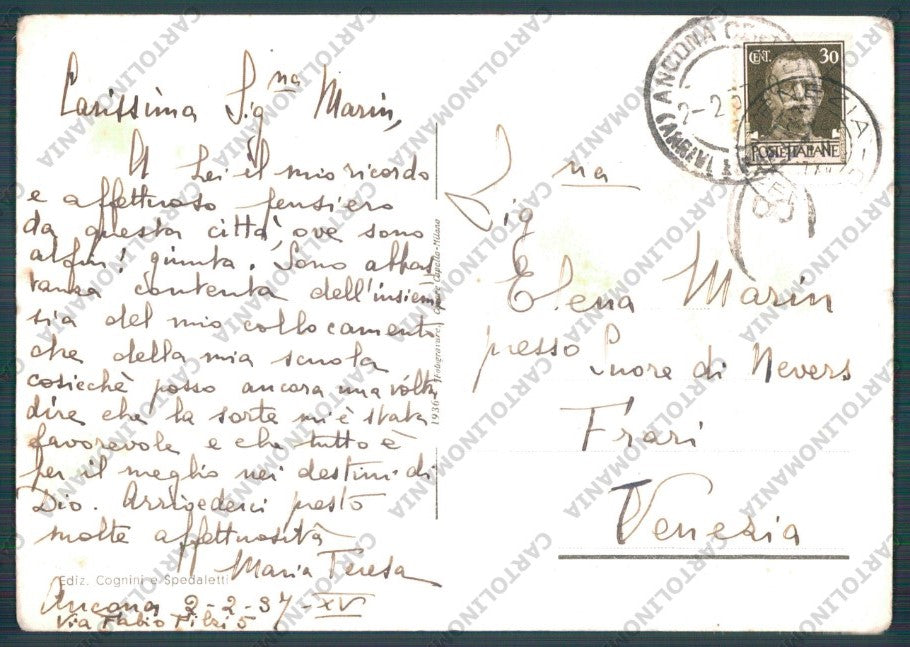 Carissima Sig.na Marin,
A Lei il mio ricordo
e affettuoso pensiero
da questa città ove sono
alfin! giunta. Sono abbas
tanza contenta dell'insieme
sia del mio collocamento
che della mia scuola
cosicchè posso ancora una volta
dire che la sorte m'è stata
favorevole e che tutto è
per il meglio nei destini di
Dio. Arrivederci presto
molte affettuosità
Maria Teresa
Ediz. Cognini e Spedaletti
Ancona 2-2-37-XV
Via Fabio Filzi 5
1936 - Fotogravure Cesare Capello-Milano
ANCONA
2-2
CENT. 30
POSTE ITALIANE
VENEZIA
Sig na
Elena Marin
presso Suore di Nevers
Frari
Venezia
CARTOLINOMANIA